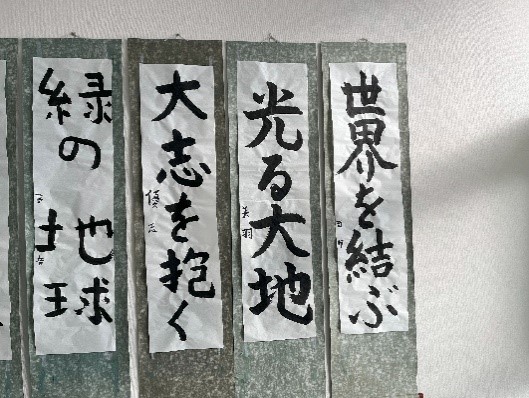 世界を結ぶ
光る大地
美羽
大志を抱く
優
緑の地球